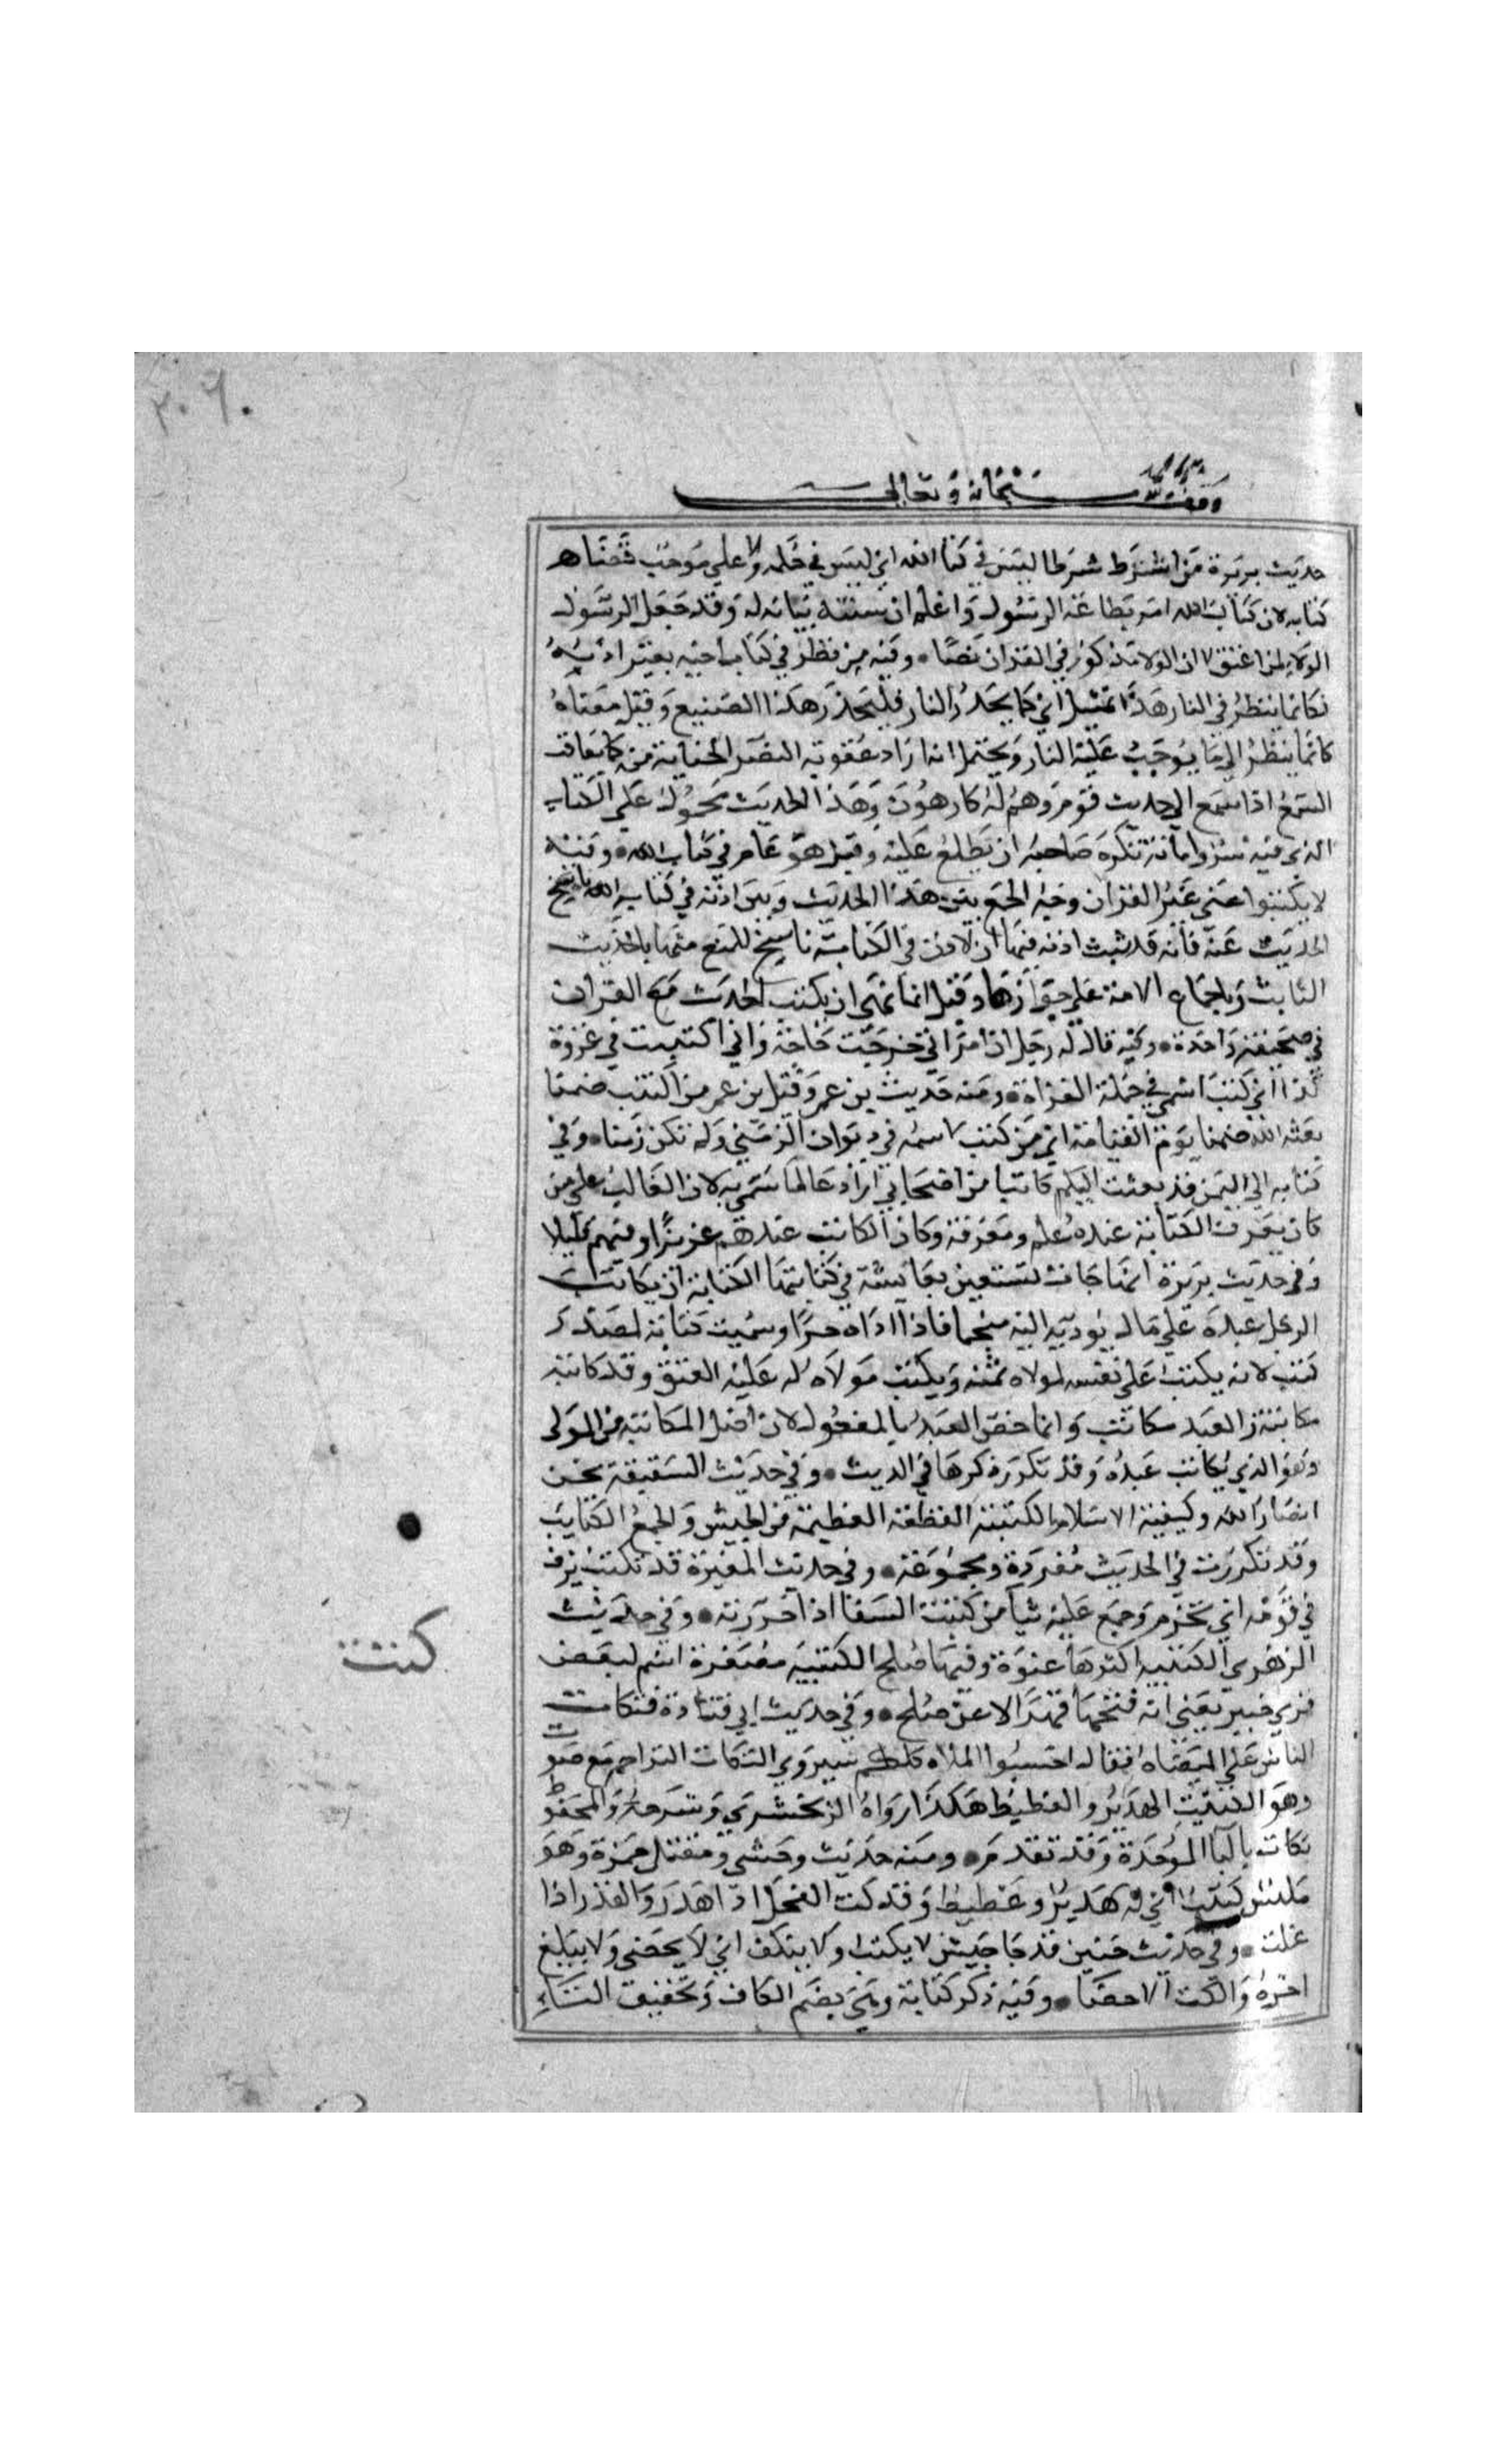 ٢٠٦٠
وقف لله سبحانه وتعالى
حديث بريرة من اشترط شرطا ليس في كتاب الله اي ليس في حكمه ولا على موجب قضاء
كتابه لان كتاب الله امر بطاعة الرسول واعلم ان سنته بيان له وقد جعل الرسول
الولاء لمن اعتق لا ان الولا مذكور في القران نصا ۰ وفيه من نظر في كتاب اخيه بغير اذنه
فكانما ينظر في النار هذا تمثيل اي كما يحذر النار فليحذر هذا الصنيع وقيل معناه
كانما ينظر الى ما يوجب عليه النار ويحتمل انه اراد عقوبة البصر لان الجناية منه كما يعاقب
السمع اذا استمع الى حديث قوم وهم له كارهون وهذا الحديث محمول على الكتاب
الذي فيه سر وامانة تكره صاحبه ان يطلع عليه وقيل هو عام في كتاب الله ۰ وفيه
لا تكتبوا عني غير القران وجه الجمع بين هذا الحديث وبين اذنه في كتابه
الحديث عنه فانه قد ثبت اذنه فيها ان الاذن في الكتابة ناسخ للمنع منها بالحديث
الثابت وباجماع الامة على جوازها وقيل انما نهى ان يكتب الحديث مع القران
في صحيفة واحدة ۰ وفيه قال له رجل ان امراتي خرجت حاجة واني اكتتبت في غزوة
كذا اي كتبت اسمي في جملة الغزاة ۰ ومنه حديث بن عمر وقيل بن عمرو من اكتتب ضمنا
بعثه الله ضمنا يوم القيامة اي من كتب اسمه في ديوان الزمنى ولم تكن زمنا ۰ وفي
كتابه الى اليمن قد بعثت اليكم كاتبا من اصحابي اراد عالما سمي به لان الغالب على من
كان يعرف الكتابة عنده علم ومعرفة وكان الكاتب عندهم عزيزا وفيهم قليلا
وفي حديث بريرة انها جات تستعين بعايشة في كتابتها الكتابة ان يكاتب
الرجل عبده على مال يوديه اليه منجما فاذا اداه حرا وسميت كتابة لمصدر
كتب لانه يكتب على نفسه لمولاه ثمنه ويكتب مولاه له عليه العتق وقد كاتبه
مكاتبة والعبد مكاتب وانما خص العبد بالمفعول لان اصل المكاتبة من المولى
وهو الذي يكاتب عبده وقد تكرر ذكرها في الحديث ۰ وفي حديث السقيفة نحن
انصار الله وكتيبة الاسلام الكتيبة القطعة العظيمة من الجيش والجمع الكتايب
وقد تكررت في الحديث مفردة ومجموعة ۰ وفي حديث المغيرة قد تكتب يزف
في قومه اي تحزم وجمع عليه ثيابه من كتبت السقا اذا خرزته ۰ وفي حديث
الزهري الكتيبة اكثرها عنوة وفيها صلح الكتيبة مصغرة اسم لبعض
قرى خيبر يعني انه فتحها قهرا لا عن صلح ۰ وفي حديث ابي قتادة فتكات
الناس على الميضاه فقال احسنوا الملاه فكلكم سيروى التكات التزاحم مع صوت
وهو الكتيت الهدير والغطيط هكذا رواه الزمخشري وشرحه والمحفوظ
تكات بالبا الموحدة وقد تقدم ۰ ومنه حديث وحشي ومقتل حمزة وهو
مكبس كتيت اي له هدير وغطيط وقد كت الفحل اذا هدر والقدر اذا
غلت ۰ وفي حديث حنين قد جا جيش لا يكت ولا ينكف اي لا يحصى ولا يبلغ
اخره والكت الاحصا ۰ وفيه ذكر كتاتة وهي بضم الكاف وتخفيف التاء
كتت